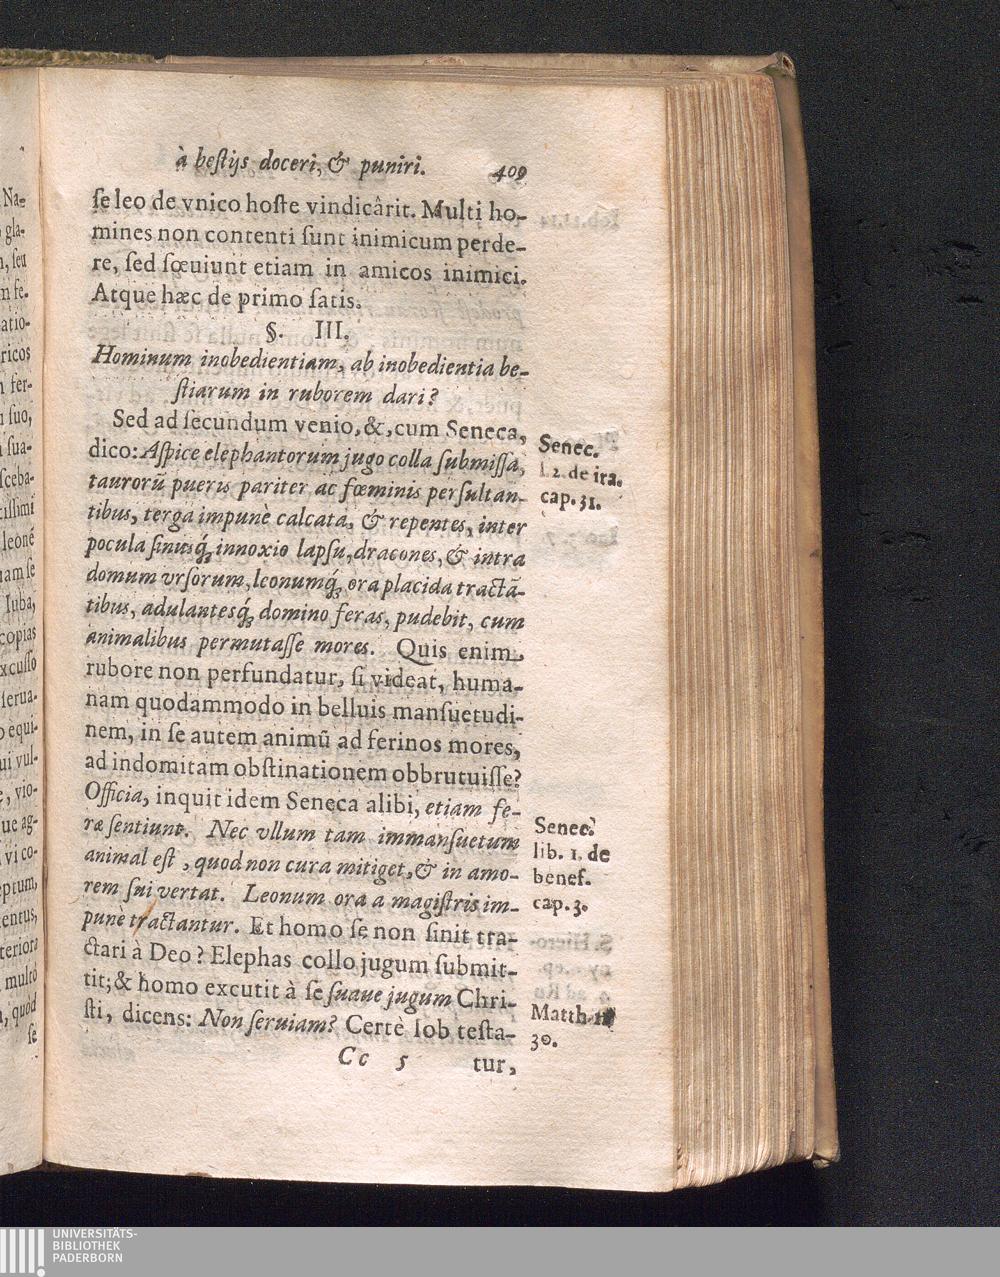 à bestijs doceri, & puniri. 409
se leo de vnico hoste vindicârit. Multi ho-
mines non contenti sunt inimicum perde-
re, sed sœuiunt etiam in amicos inimici.
Atque hæc de primo satis.
§. III.
Hominum inobedientiam, ab inobedientia be-
stiarum in ruborem dari?
Sed ad secundum venio, &, cum Seneca,
dico: Aspice elephantorum jugo colla submissa,
taurorũ pueris pariter ac fœminis persultan-
tibus, terga impunè calcata, & repentes, inter
pocula sinusq́; innoxio lapsu, dracones, & intra
domum vrsorum, leonumq́; ora placida tractã-
tibus, adulantesq́; domino feras, pudebit, cum
animalibus permutasse mores. Quis enim
rubore non perfundatur, si videat, huma-
nam quodammodo in belluis mansuetudi-
nem, in se autem animũ ad ferinos mores,
ad indomitam obstinationem obbrutuisse?
Officia, inquit idem Seneca alibi, etiam fe-
ræ sentiunt. Nec vllum tam immansuetum
animal est, quod non cura mitiget, & in amo-
rem sui vertat. Leonum ora a magistris im-
punè tractantur. Et homo se non sinit tra-
ctari à Deo? Elephas collo jugum submit-
tit; & homo excutit à se suaue jugum Chri-
sti, dicens: Non seruiam? Certè Iob testa-
Cc 5 tur,
Senec.
l. 2. de ira.
cap. 31.
Senec.
lib. 1. de
benef.
cap. 3.
Matth. 11
30.
Na-
gla-
seu
fe.
atio-
ricos
fer-
suo,
sua-
sceba-
tissimi
leonẽ
se
Iuba,
copias
xcusso
serua-
equi-
ui vul-
vio-
ue ag-
vi co-
eptum,
entus,
teriora
multò
quòd
se
UNIVERSITÄTS-
BIBLIOTHEK
PADERBORN